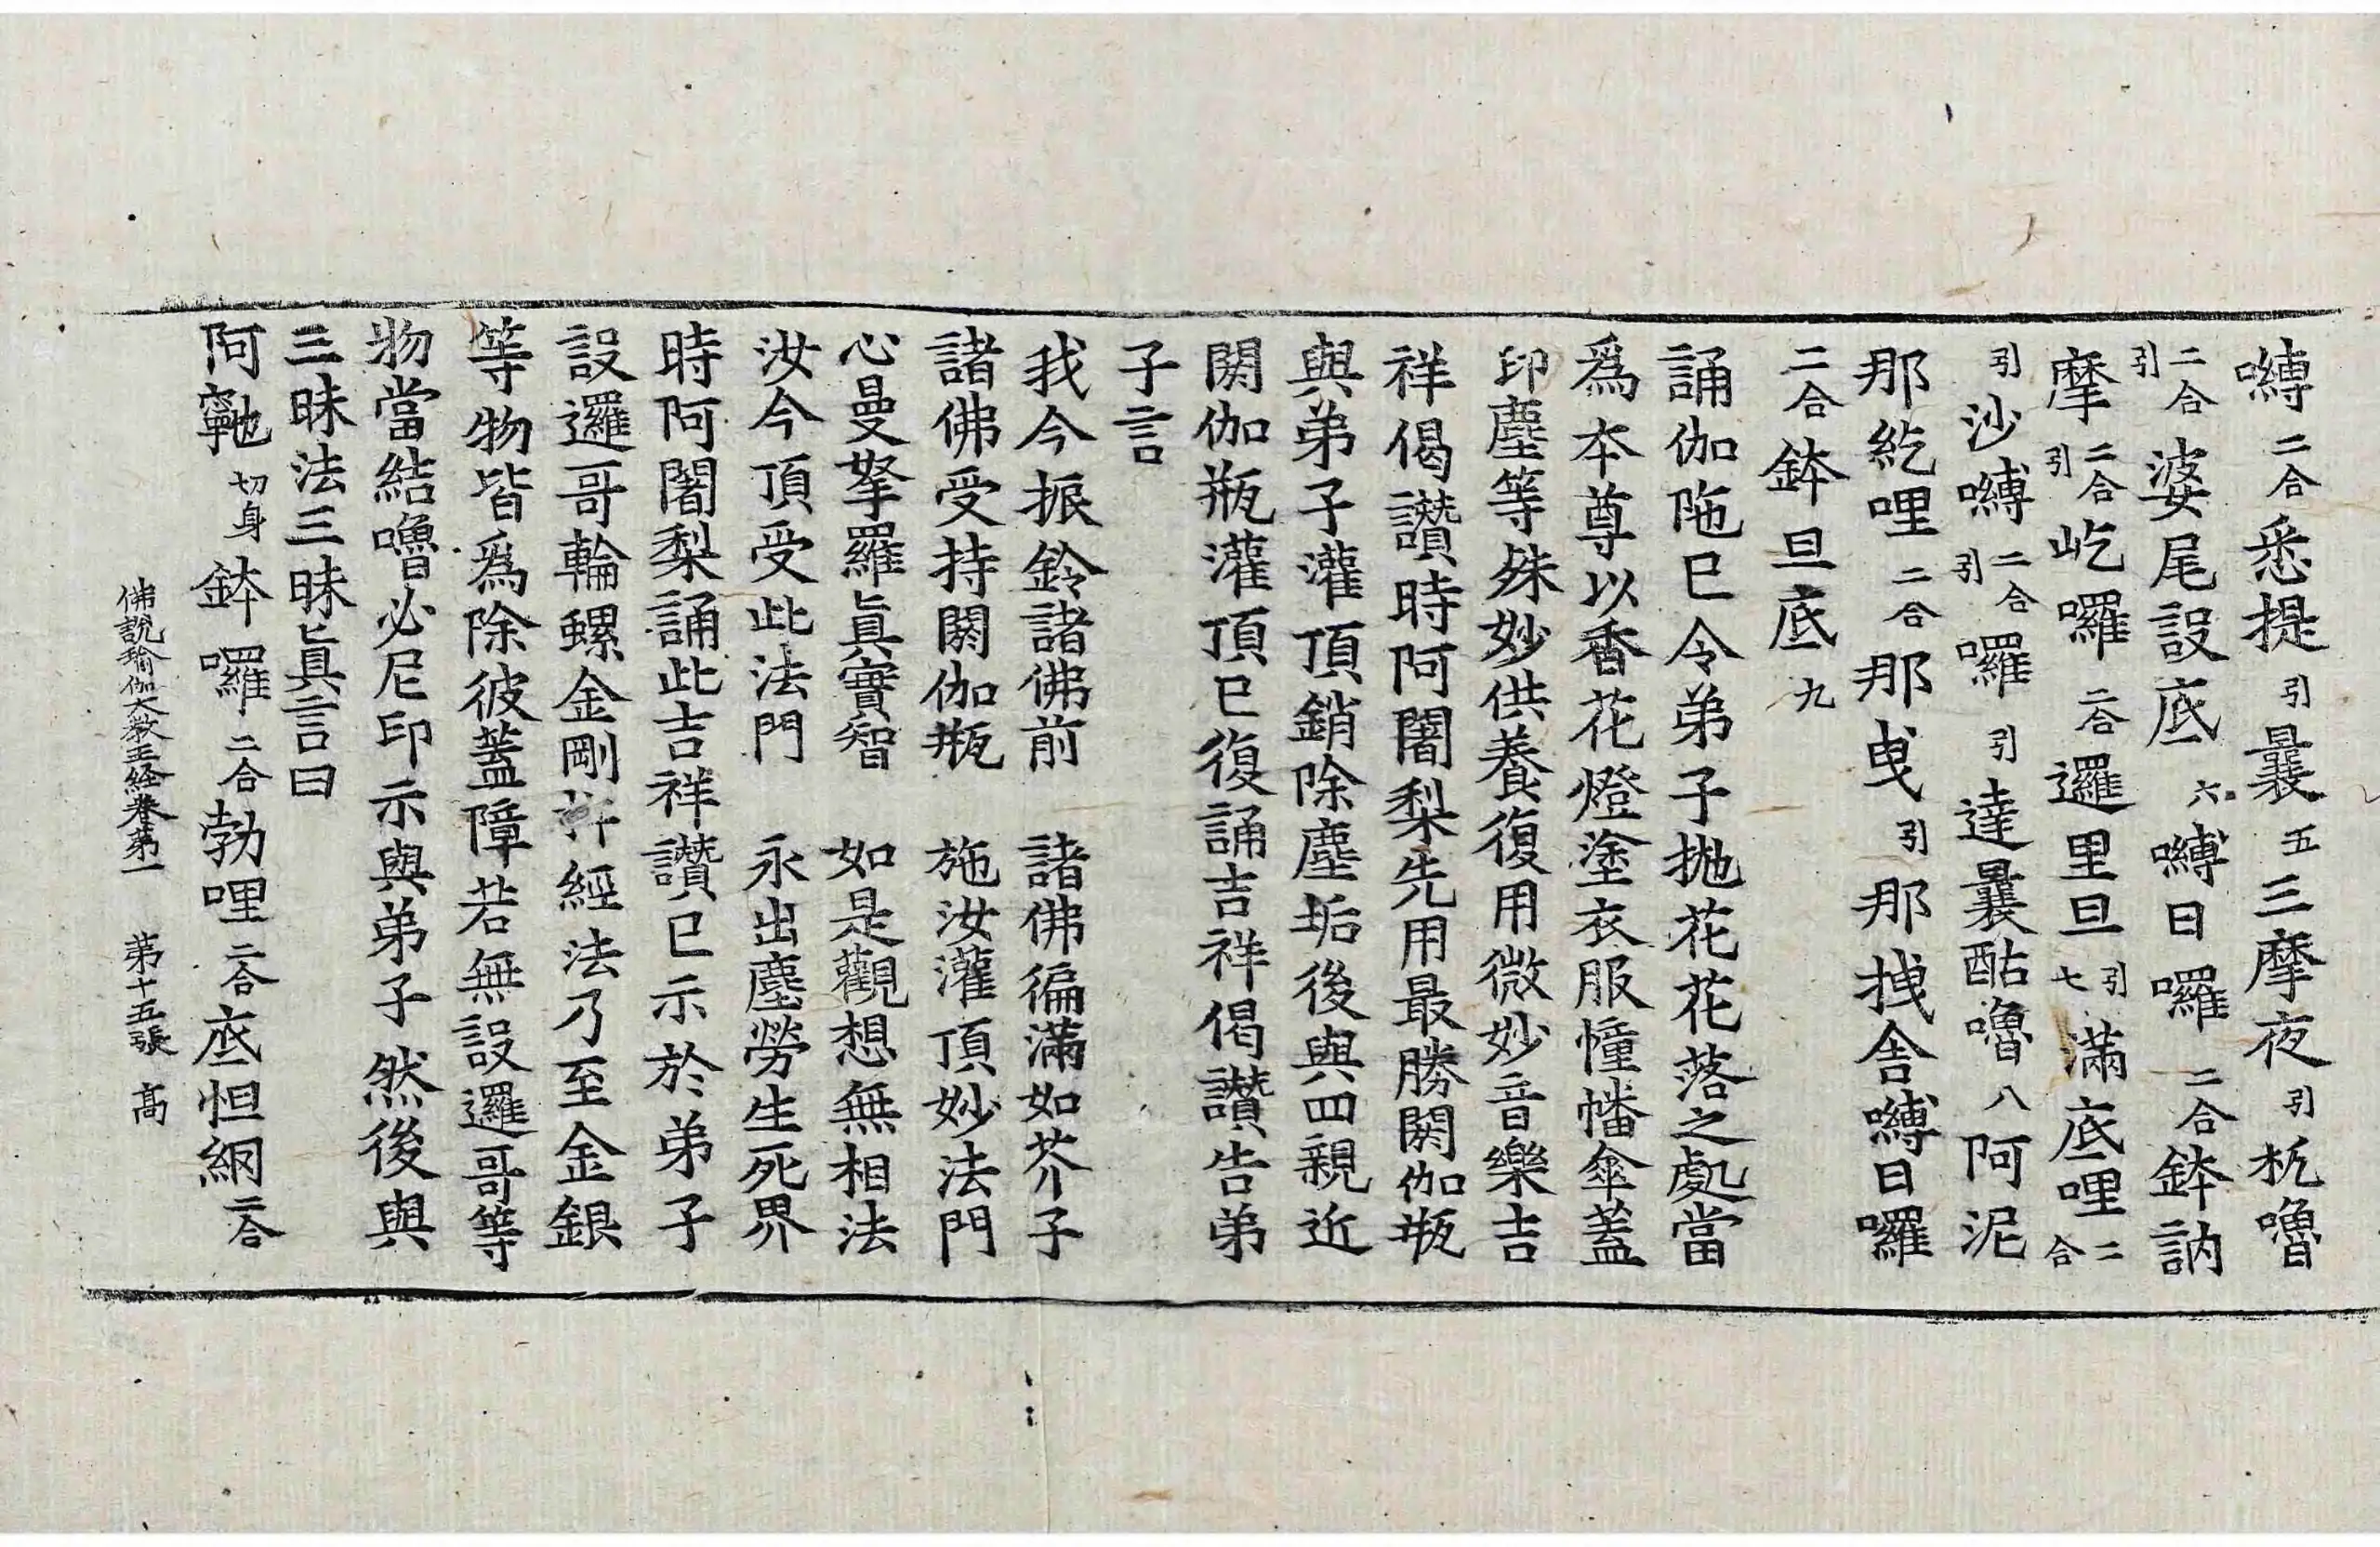 嚩二合悉提引曩五三摩夜引杌嚕
二合引婆尾設底六嚩日囉二合鉢訥
摩二合引屹囉二合邏里旦引七滿底哩二合
引沙嚩二合引囉引達曩酤嚕八阿泥
那紇哩二合那曳引那拽舍嚩日囉
二合鉢旦底九
誦伽陁已令弟子抛花花落之處當
爲本尊以香花燈塗衣服幢幡傘蓋
印塵等殊妙供養復用微妙音樂吉
祥偈讚時阿闍梨先用最勝閼伽瓶
與弟子灌頂銷除塵垢後與四親近
閼伽瓶灌頂已復誦吉祥偈讚告弟
子言
我今振鈴諸佛前　諸佛徧滿如芥子
諸佛受持閼伽瓶　施汝灌頂妙法門
心曼拏羅眞實智　如是觀想無相法
汝今頂受此法門　永出塵勞生死界
時阿闍梨誦此吉祥讚已示於弟子
設邏哥輪螺金剛杵經法乃至金銀
等物皆爲除彼蓋障若無設邏哥等
物當結嚕必尼印示與弟子然後與
三昧法三昧眞言曰
阿鼒切身鉢囉二合勃哩二合底怛綱二合
佛說瑜伽大教王經卷第一　第十五張　高